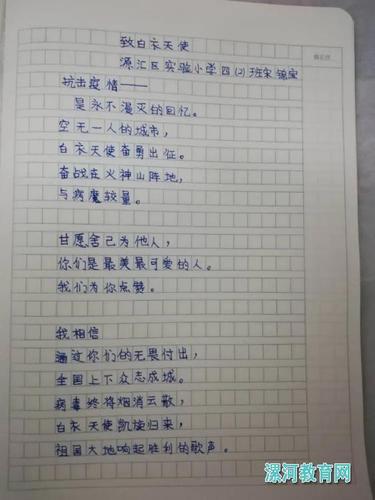 致白衣天使
源汇区实验小学四(2)班宋镜宝
抗击疫情——
是永不漫灭的回忆。
空无一人的城市，
白衣天使奋勇出征。
奋战在火神山阵地，
与病魔较量。
甘愿舍己为他人，
你们是最美最可爱的人。
我们为你点赞。
我相信
通过你们的无畏付出，
全国上下众志成城。
病毒终将烟消云散，
白衣天使凯旋归来，
祖国大地响起胜利的歌声。
漯河教育网